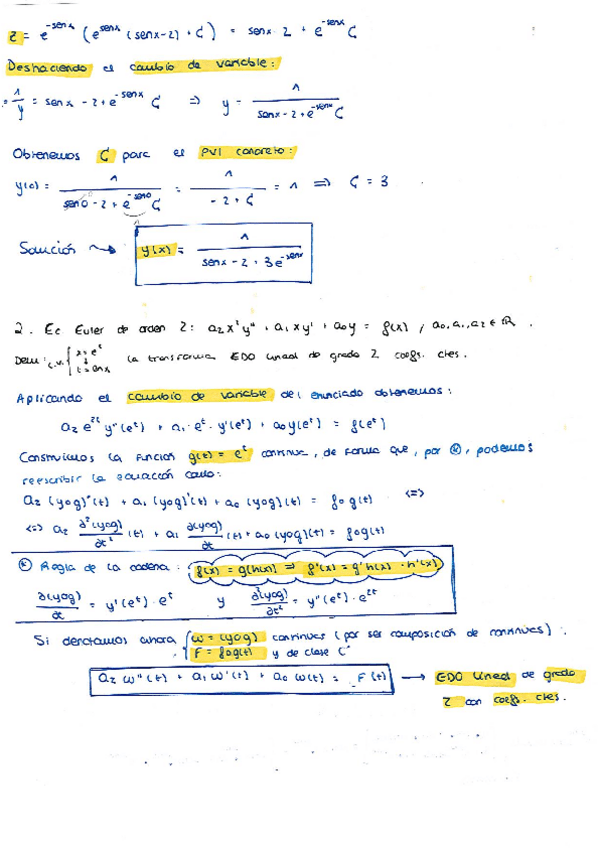 z = e^{-senx} (e^{senx} (senx-2) + C) = senx - 2 + e^{-senx} C
Deshaciendo el cambio de variable:
= 1/y = senx - 2 + e^{-senx} C ⇒ y = 1/(senx - 2 + e^{-senx} C)
Obtenemos C para el PVI concreto:
y(0) = 1/(sen0 - 2 + e^{-sen0} C) = 1/(-2 + C) = 1 ⇒ C = 3
Solución ⇝ y(x) = 1/(senx - 2 + 3e^{-senx})
2. Ec Euler de orden 2: a₂x²y'' + a₁xy' + a₀y = f(x), a₀,a₁,a₂ ∈ ℝ.
Dem: c.v. { x = e^t ↕ t = ln x la transforma EDO lineal de grado 2 coefs. ctes.
Aplicando el cambio de variable del enunciado obtenemos:
a₂ e^{2t} y''(e^t) + a₁ · e^t · y'(e^t) + a₀y(e^t) = f(e^t)
Construimos la función g(t) = e^t continua, de forma que, por ⊛, podemos
reescribir la ecuación como:
a₂ (yog)''(t) + a₁ (yog)'(t) + a₀ (yog)(t) = fog(t) <=>
<=> a₂ ∂²(yog)/∂t² (t) + a₁ ∂(yog)/∂t (t) + a₀(yog)(t) = fog(t)
⊛ Regla de la cadena: f(x) = g(h(x)) ⇒ f'(x) = g'h(x) · h'(x)
∂(yog)/∂t = y'(e^t) · e^t y ∂²(yog)/∂t² = y''(e^t) · e^{2t}
Si denotamos ahora { w = (yog) continues (por ser composición de continues);
F = fog(t) y de clase C'
a₂ w''(t) + a₁ w'(t) + a₀ w(t) = F(t) → EDO lineal de grado
2 con coefs. ctes.